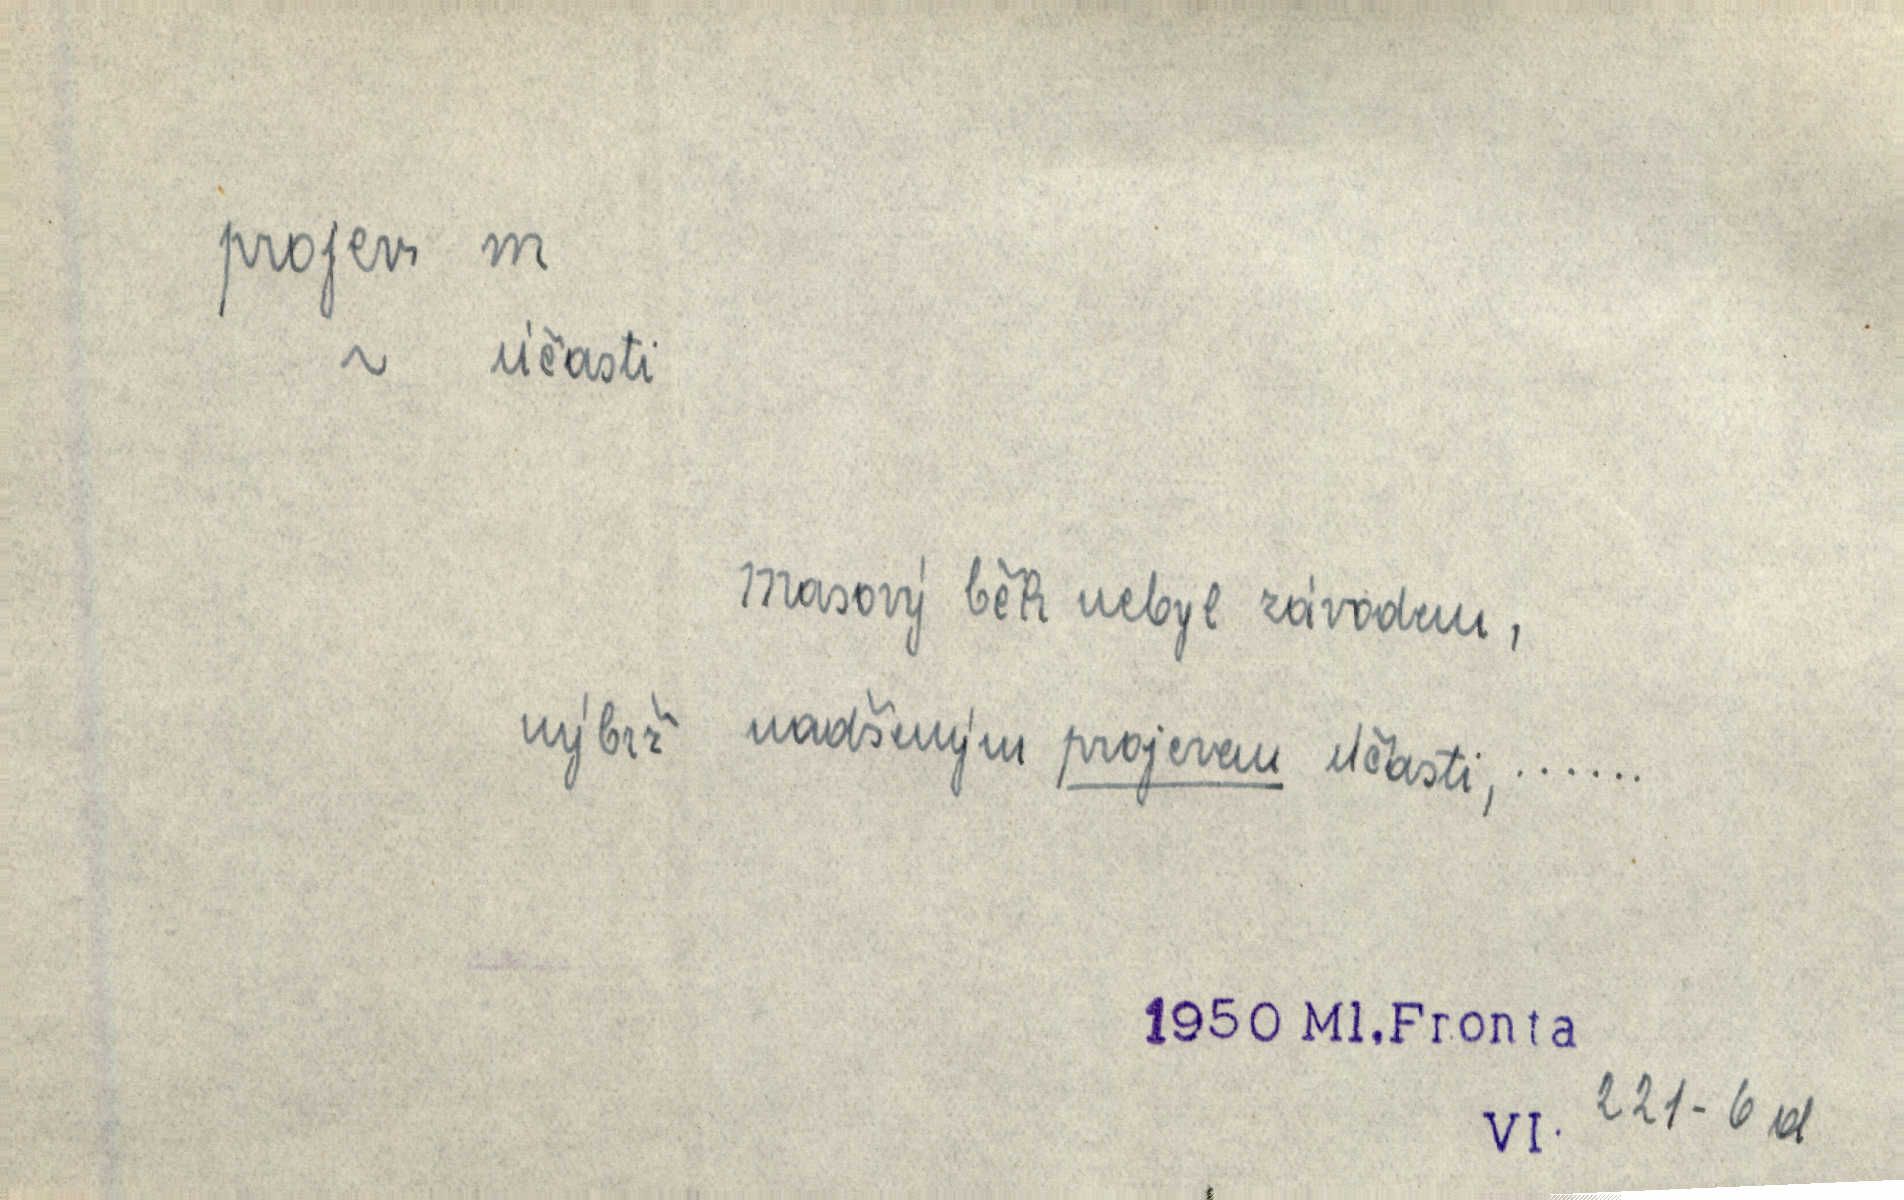 projev m
~ účasti
Masový běh nebyl závodem,
nýbrž nadšeným projevem účasti, .......
1950 Ml.Fronta
VI. 221-6 d